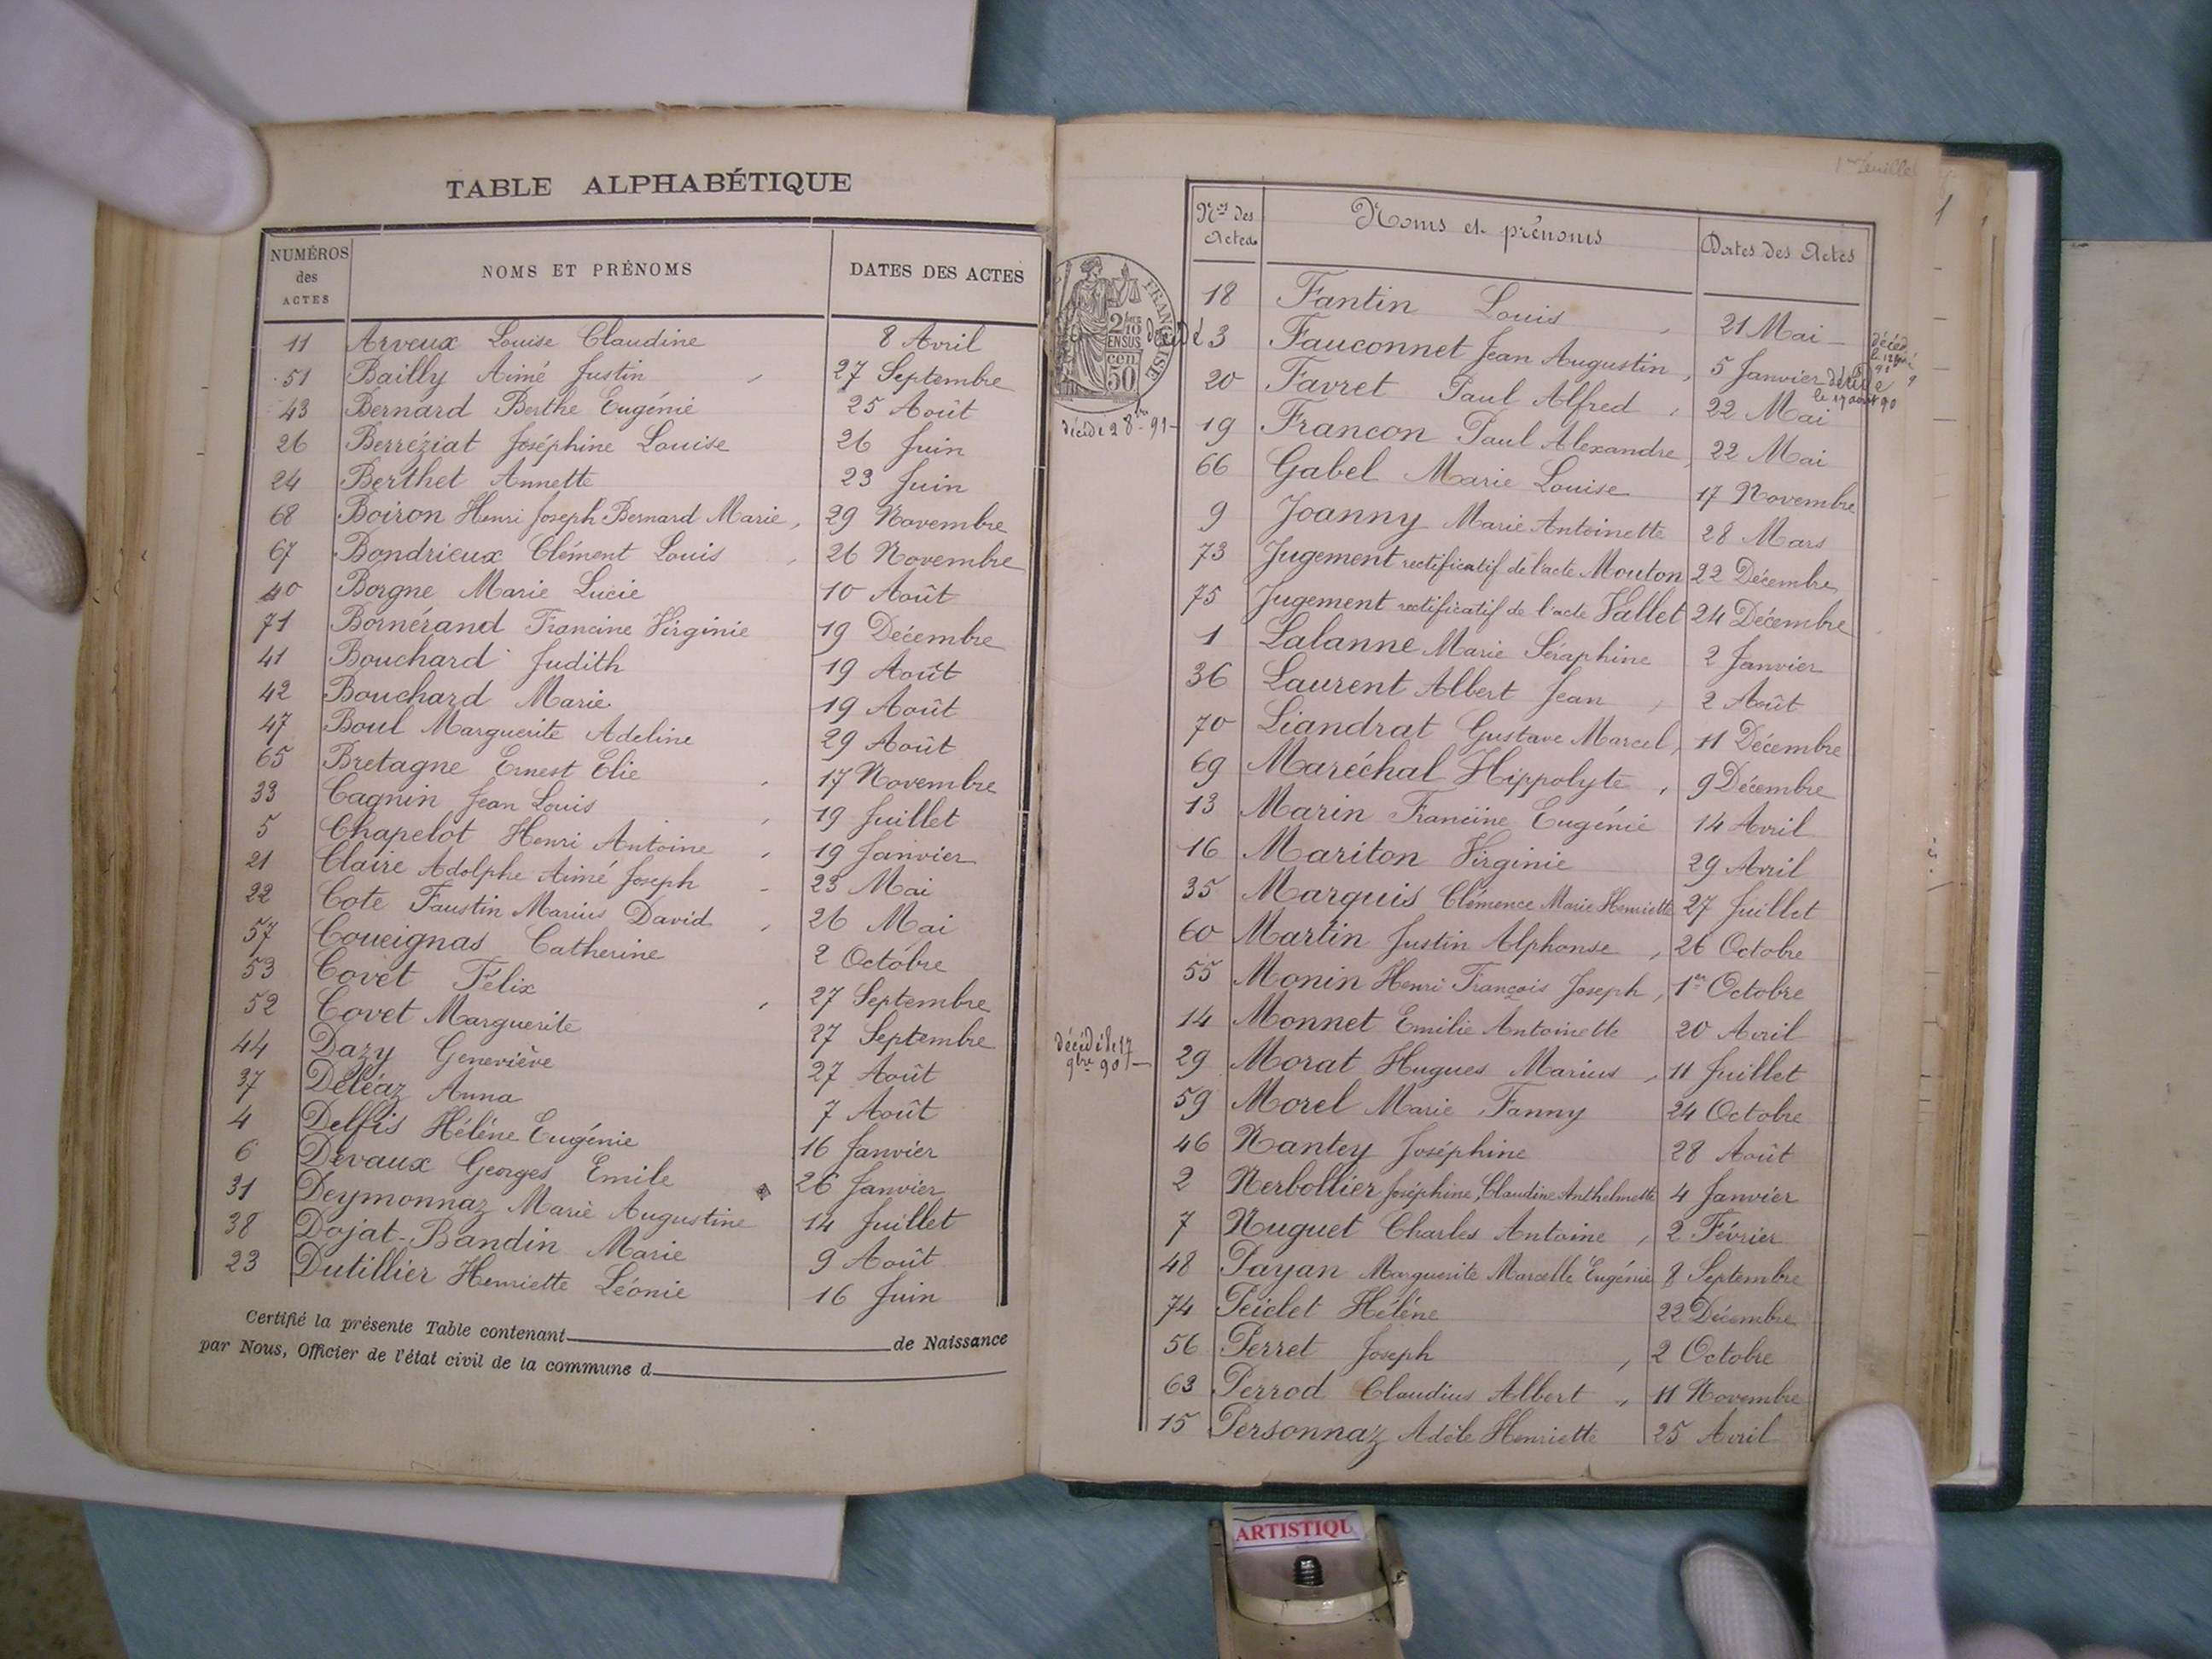 TABLE ALPHABÉTIQUE
NUMÉROS des ACTES NOMS ET PRÉNOMS DATES DES ACTES
11 Arveux Louise Claudine 8 Avril
51 Bailly Aimé Justin 27 Septembre
43 Bernard Berthe Eugénie 25 Août
26 Berréziat Joséphine Louise 26 Juin
24 Berthet Annette 23 Juin
68 Boiron Henri Joseph Bernard Marie, 29 Novembre
67 Bondrieux Clément Louis 26 Novembre
40 Borgne Marie Lucie 10 Août
71 Bornérand Francine Virginie 19 Décembre
41 Bouchard Judith 19 Août
42 Bouchard Marie 19 Août
47 Boul Marguerite Adeline 29 Août
65 Bretagne Ernest Elie 17 Novembre
33 Cagnin Jean Louis 19 Juillet
5 Chapelot Henri Antoine 19 Janvier
21 Claire Adolphe Aimé Joseph 23 Mai
22 Cote Faustin Marius David 26 Mai
57 Coueignas Catherine 2 Octobre
53 Covet Félix 27 Septembre
52 Covet Marguerite 27 Septembre
44 Dazy Geneviève 27 Août
37 Déléaz Anna 7 Août
4 Delfis Hélène Eugénie 16 Janvier
6 Devaux Georges Emile 26 Janvier
31 Deymonnaz Marie Augustine 14 Juillet
38 Dojat-Bandin Marie 9 Août
23 Dutillier Henriette Léonie 16 Juin
Certifié la présente Table contenant de Naissance
par Nous, Officier de l'état civil de la commune d
1
Nos des Actes Noms et prénoms Dates des Actes
18 Fantin Louis 21 Mai
décédé 3 Fauconnet Jean Augustin, 5 Janvier décédé
20 Favret Paul Alfred 22 Mai
19 Francon Paul Alexandre, 22 Mai
66 Gabel Marie Louise 17 Novembre
9 Joanny Marie Antoinette 28 Mars
73 Jugement rectificatif de l'acte Mouton 22 Décembre
75 Jugement rectificatif de l'acte Vallet 24 Décembre
1 Lalanne Marie Séraphine 2 Janvier
36 Laurent Albert Jean 2 Août
70 Liandrat Gustave Marcel, 11 Décembre
69 Maréchal Hippolyte, 9 Décembre
13 Marin Francine Eugénie 14 Avril
16 Mariton Virginie 29 Avril
35 Marquis Clémence Marie Henriette 27 Juillet
60 Martin Justin Alphonse, 26 Octobre
55 Monin Henri François Joseph, 1er Octobre
14 Monnet Emilie Antoinette 20 Avril
décédé le 17 9bre 90
29 Morat Hugues Marius, 11 Juillet
59 Morel Marie Fanny 24 Octobre
46 Nantey Joséphine 28 Août
2 Nerbollier Joséphine, Claudine Anthelmette 4 Janvier
7 Nuguet Charles Antoine, 2 Février
48 Payan Marguerite Marcelle Eugénie 8 Septembre
74 Peiclet Hélène 22 Décembre
56 Perret Joseph, 2 Octobre
63 Perrod Claudius Albert, 11 Novembre
15 Personnaz Adèle Henriette 25 Avril
ARTISTIQU